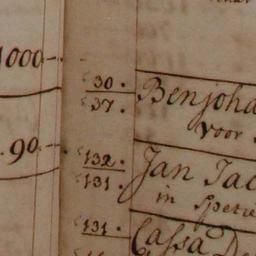 1000-
30.
37.
Benjoha
voor
90-
132.
131.
Jan Jac
in Specie
131.
Cassa De